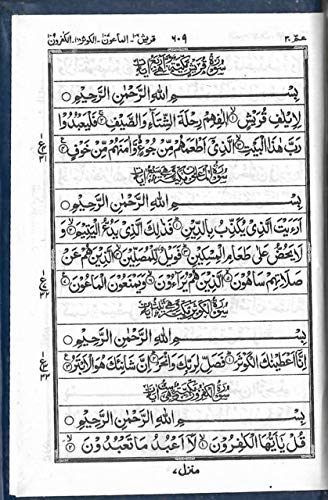 عمّ ٣٠ ٦٠٩ قريش١٠٦ الماعون١٠٧ الكوثر١٠٨ الكٰفرون١٠٩
سورة قريش مكية وهي اربع ايات
بِسْمِ اللهِ الرَّحْمٰنِ الرَّحِيْمِ ○
لِاِيْلٰفِ قُرَيْشٍ ۙ اٖلٰفِهِمْ رِحْلَةَ الشِّتَآءِ وَالصَّيْفِ ۚ فَلْيَعْبُدُوْا
رَبَّ هٰذَا الْبَيْتِ ۙ الَّذِيْٓ اَطْعَمَهُمْ مِّنْ جُوْعٍ ۙ وَّاٰمَنَهُمْ مِّنْ خَوْفٍ ○
سورة الماعون مكية وهي سبع ايات
بِسْمِ اللهِ الرَّحْمٰنِ الرَّحِيْمِ ○
اَرَءَيْتَ الَّذِيْ يُكَذِّبُ بِالدِّيْنِ ○ فَذٰلِكَ الَّذِيْ يَدُعُّ الْيَتِيْمَ ○ وَ
لَا يَحُضُّ عَلٰى طَعَامِ الْمِسْكِيْنِ ○ فَوَيْلٌ لِّلْمُصَلِّيْنَ ○ الَّذِيْنَ هُمْ عَنْ
صَلَاتِهِمْ سَاهُوْنَ ○ الَّذِيْنَ هُمْ يُرَآءُوْنَ ○ وَيَمْنَعُوْنَ الْمَاعُوْنَ ○
سورة الكوثر مكية وهي ثلث ايات
بِسْمِ اللهِ الرَّحْمٰنِ الرَّحِيْمِ ○
اِنَّآ اَعْطَيْنٰكَ الْكَوْثَرَ ○ فَصَلِّ لِرَبِّكَ وَانْحَرْ ○ اِنَّ شَانِئَكَ هُوَ الْاَبْتَرُ ○
سورة الكفرون مكية وهي ست ايات
بِسْمِ اللهِ الرَّحْمٰنِ الرَّحِيْمِ ○
قُلْ يٰٓاَيُّهَا الْكٰفِرُوْنَ ○ لَآ اَعْبُدُ مَا تَعْبُدُوْنَ ○
منزل ٧